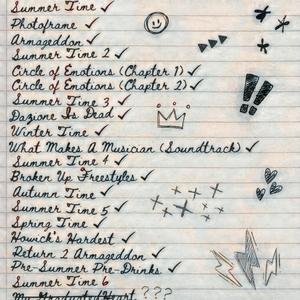 Summer Time ✓
Photoframe ✓
Armageddon ✓
Summer Time 2 ✓
Circle of Emotions (Chapter 1) ✓
Circle of Emotions (Chapter 2) ✓
Summer Time 3 ✓
Dazione Is Dead ✓
Winter Time ✓
What Makes A Musician (Soundtrack) ✓
Summer Time 4 ✓
Broken Up Freestyles ✓
Autumn Time ✓
Summer Time 5 ✓
Spring Time ✓
Howick's Hardest ✓
Return 2 Armageddon ✓
Pre-Summer Pre-Drinks ✓
Summer Time 6
My Graduated Heart ???